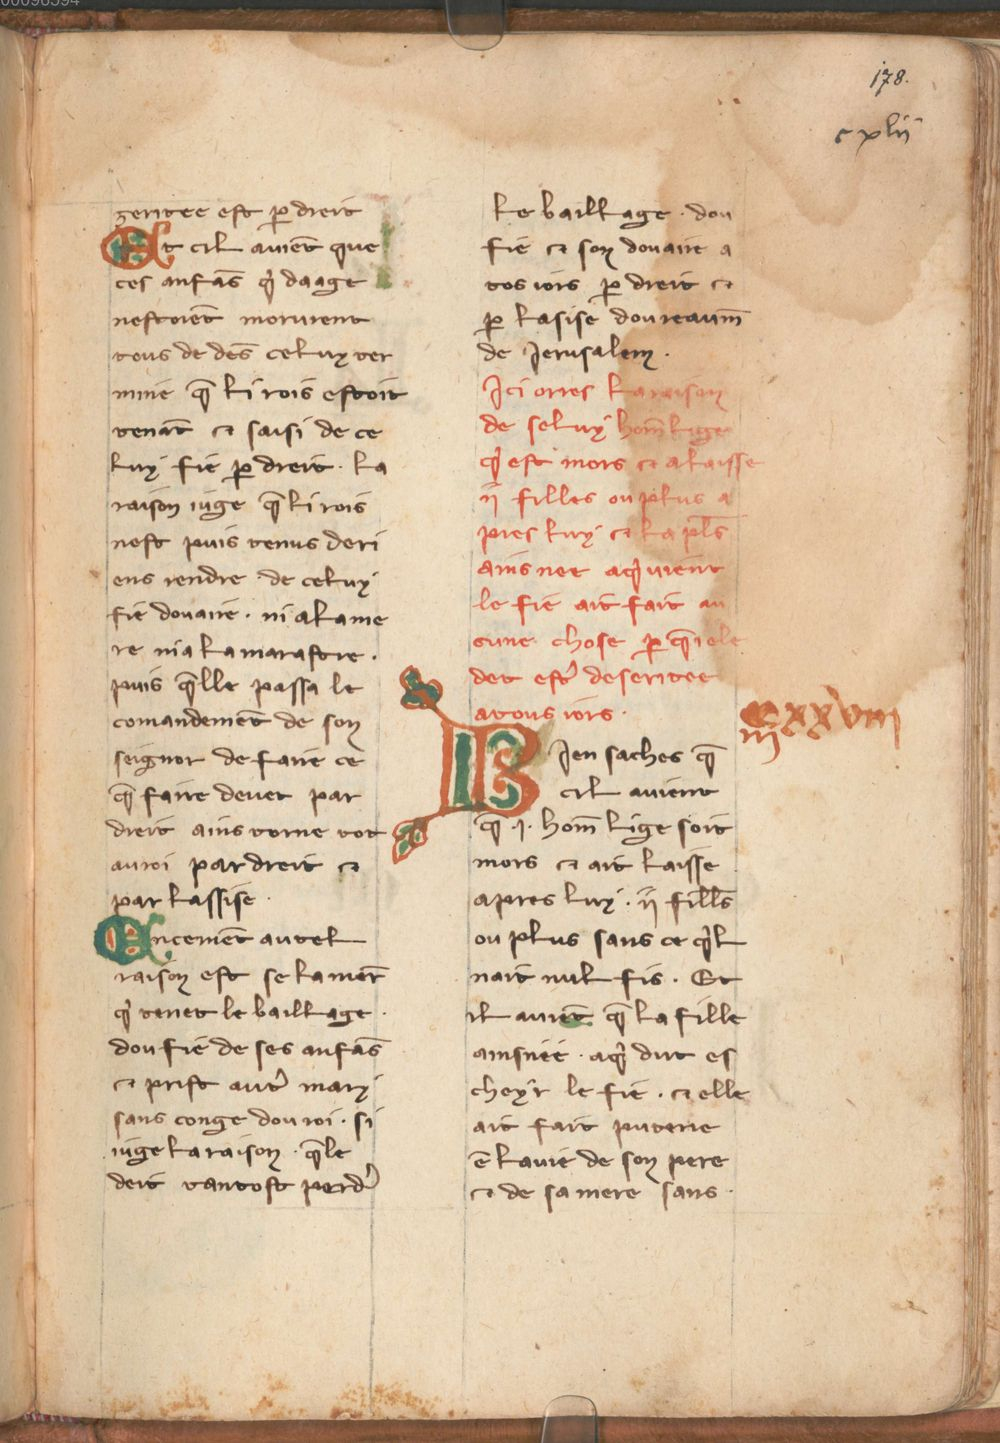 178.
cxlii
zeritee est p̱ dreit
Et cil auient̄ que
ces anfās q̇ daage
nestoient̄ morurent
tous de dēs celuy ter
mine q̄ li rois estoit
tenāt et saisi de ce
luy fie p̱ dreit · la
raison iuge q̄ li rois
nest puis tenus de ri
ens rendre · de celuy
fie douaire · ni a la me
re ni a la marastre ·
puis q̄lle passa le
comandemēt de son
seignor de faire ce
q̄ faire deuet par
dreit ains torne tot
au roi par dreit et
par lassise ·
Encemēt autel
raison est se la mer̄
q̇ tenet le baillage ·
dou fie de ses anfās
et prist aut̉ mary
sans conge dou roi · si
iuge la raison · q̄le
deit tantost perdr̉
le baillage · dou
fie et son douaire a
tos iors p̱ dreit et
p̱ lasise dou reaum̄
de Jerusalem ·
Ici orres la raison
de seluy hom̄ lige
q̇ est mors et a laisse
ij filles ou plus a
pres luy et la pl̄s
ainsnee a q̇ uient
le fie ait fait au
cune chose p̱ q̄i ele
det estr̉ deseritee
a tous iors ·
CXXVIII
iij
Bien saches q̄
cil auient
q̄ · j · hom̄ lige soit
mors et ait laisse
apres luy · ij fill̄s
ou plus sans ce q̇l
nait nul fis · Et
il auiēt q̄ la fille
ainsnee · a q̇ dut es
cheyr le fie · et elle
ait fait puterie
ē la uie de son pere
et de sa mere sans ·